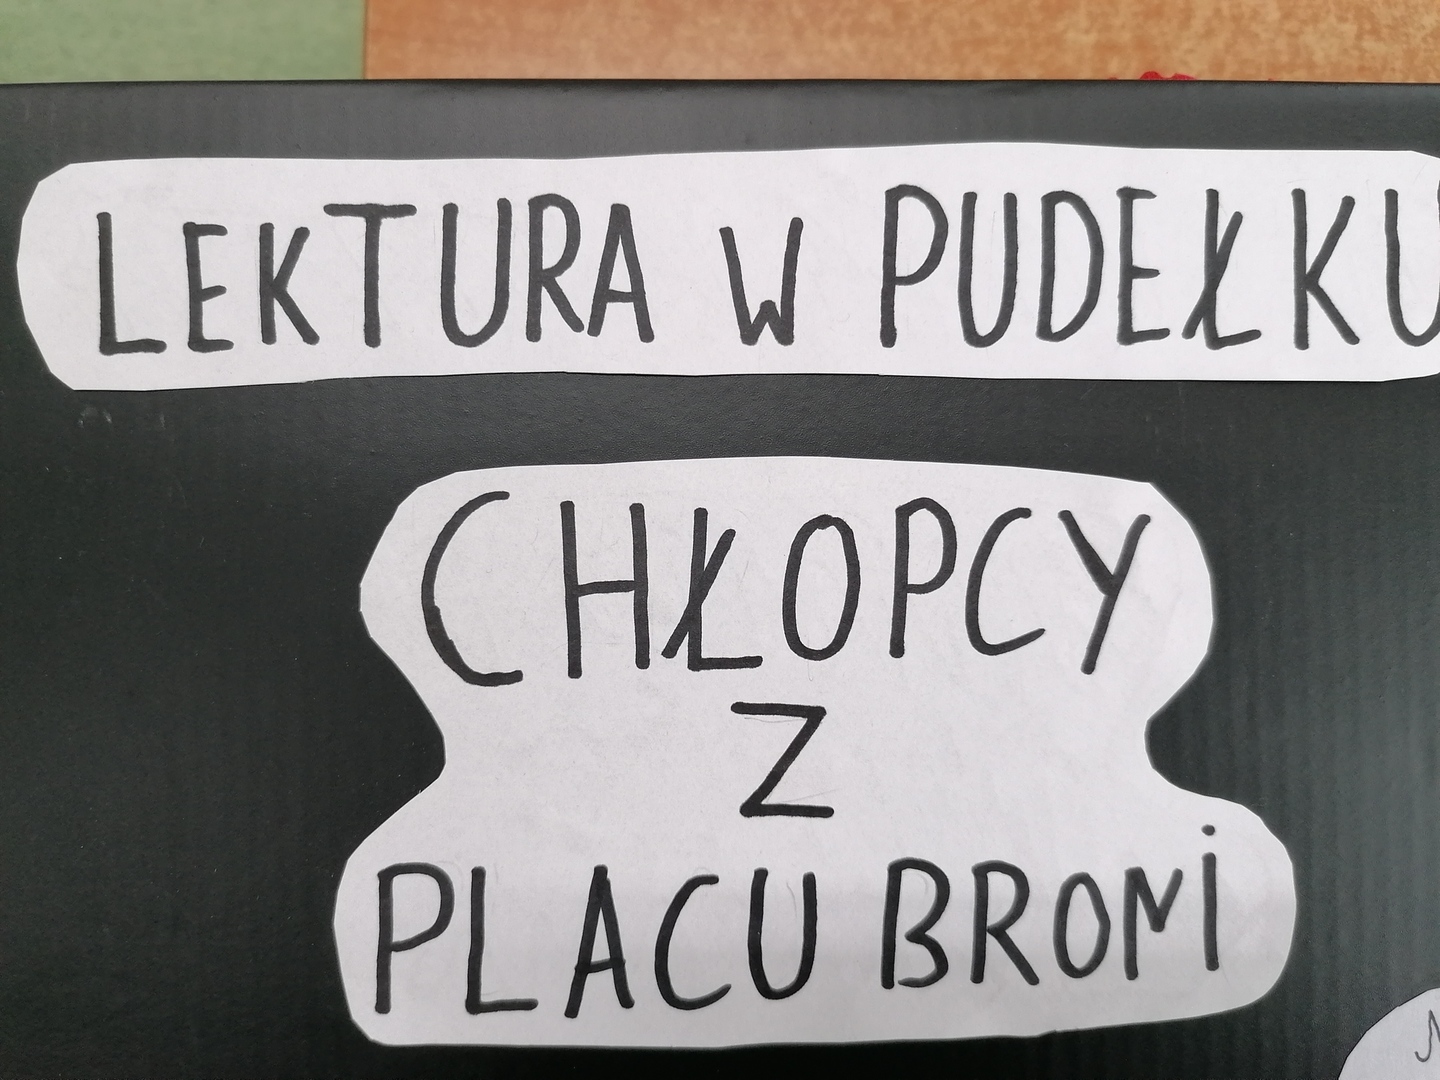 LEKTURA W PUDEŁKU
CHŁOPCY
Z
PLACU BRONi